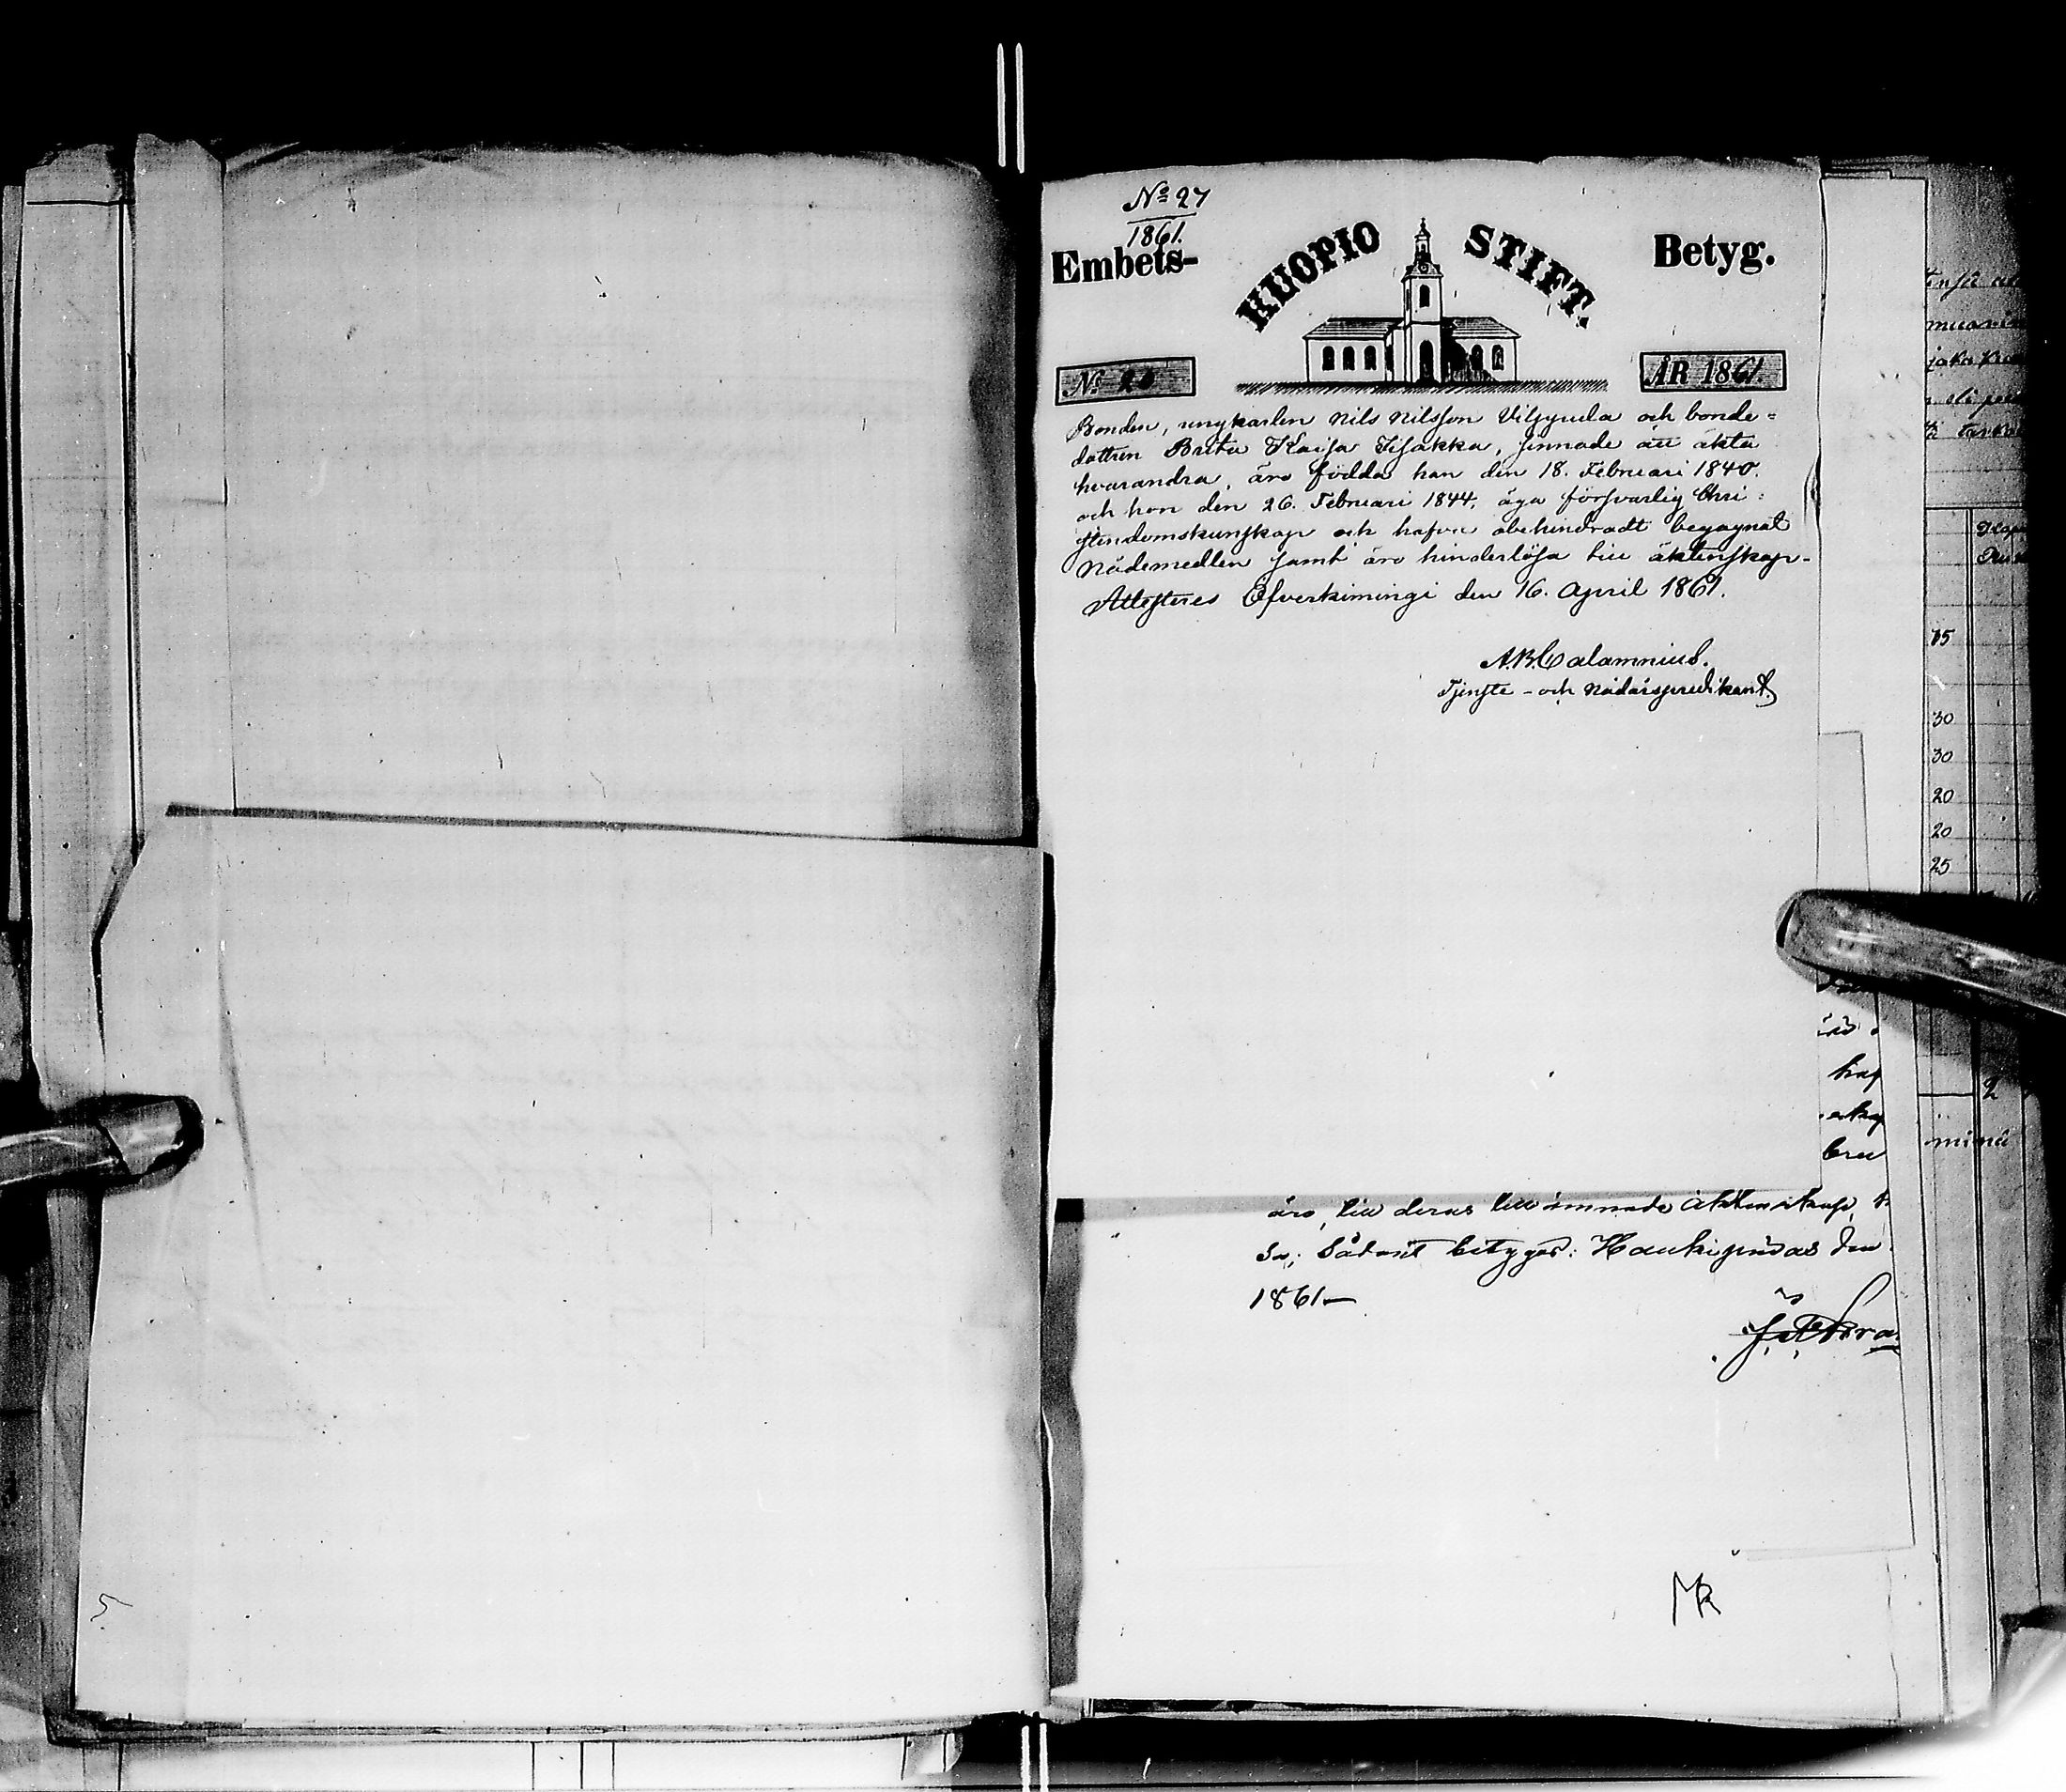 No 27
1861.
Embets- KUOPIO STIFT. Betyg.
No 20 ÅR 1861.
Bonden, ungkarlen Nils Nilsson Vilppula och bonde=
dottren Brita Kaisa, sinnade att äkta
hvarandra, äro födda han den 18. Februari 1840.
och hon den 26. Februari 1844, äga försvarlig Chri=
stendomskunskap och hafva obehindradt begagnat
Nådemedlen samt äro hinderlösa till äktenskap-
Attesteres Öfverkimingi den 16. April 1861.
A.B. Calamnius.
Tjenste- och Nådårspredikant.
haf
äro, till deras tillämnade äktenskap,
Sådant betygar: Haukipudas den
1861-
15
30
30
20
20
25
2